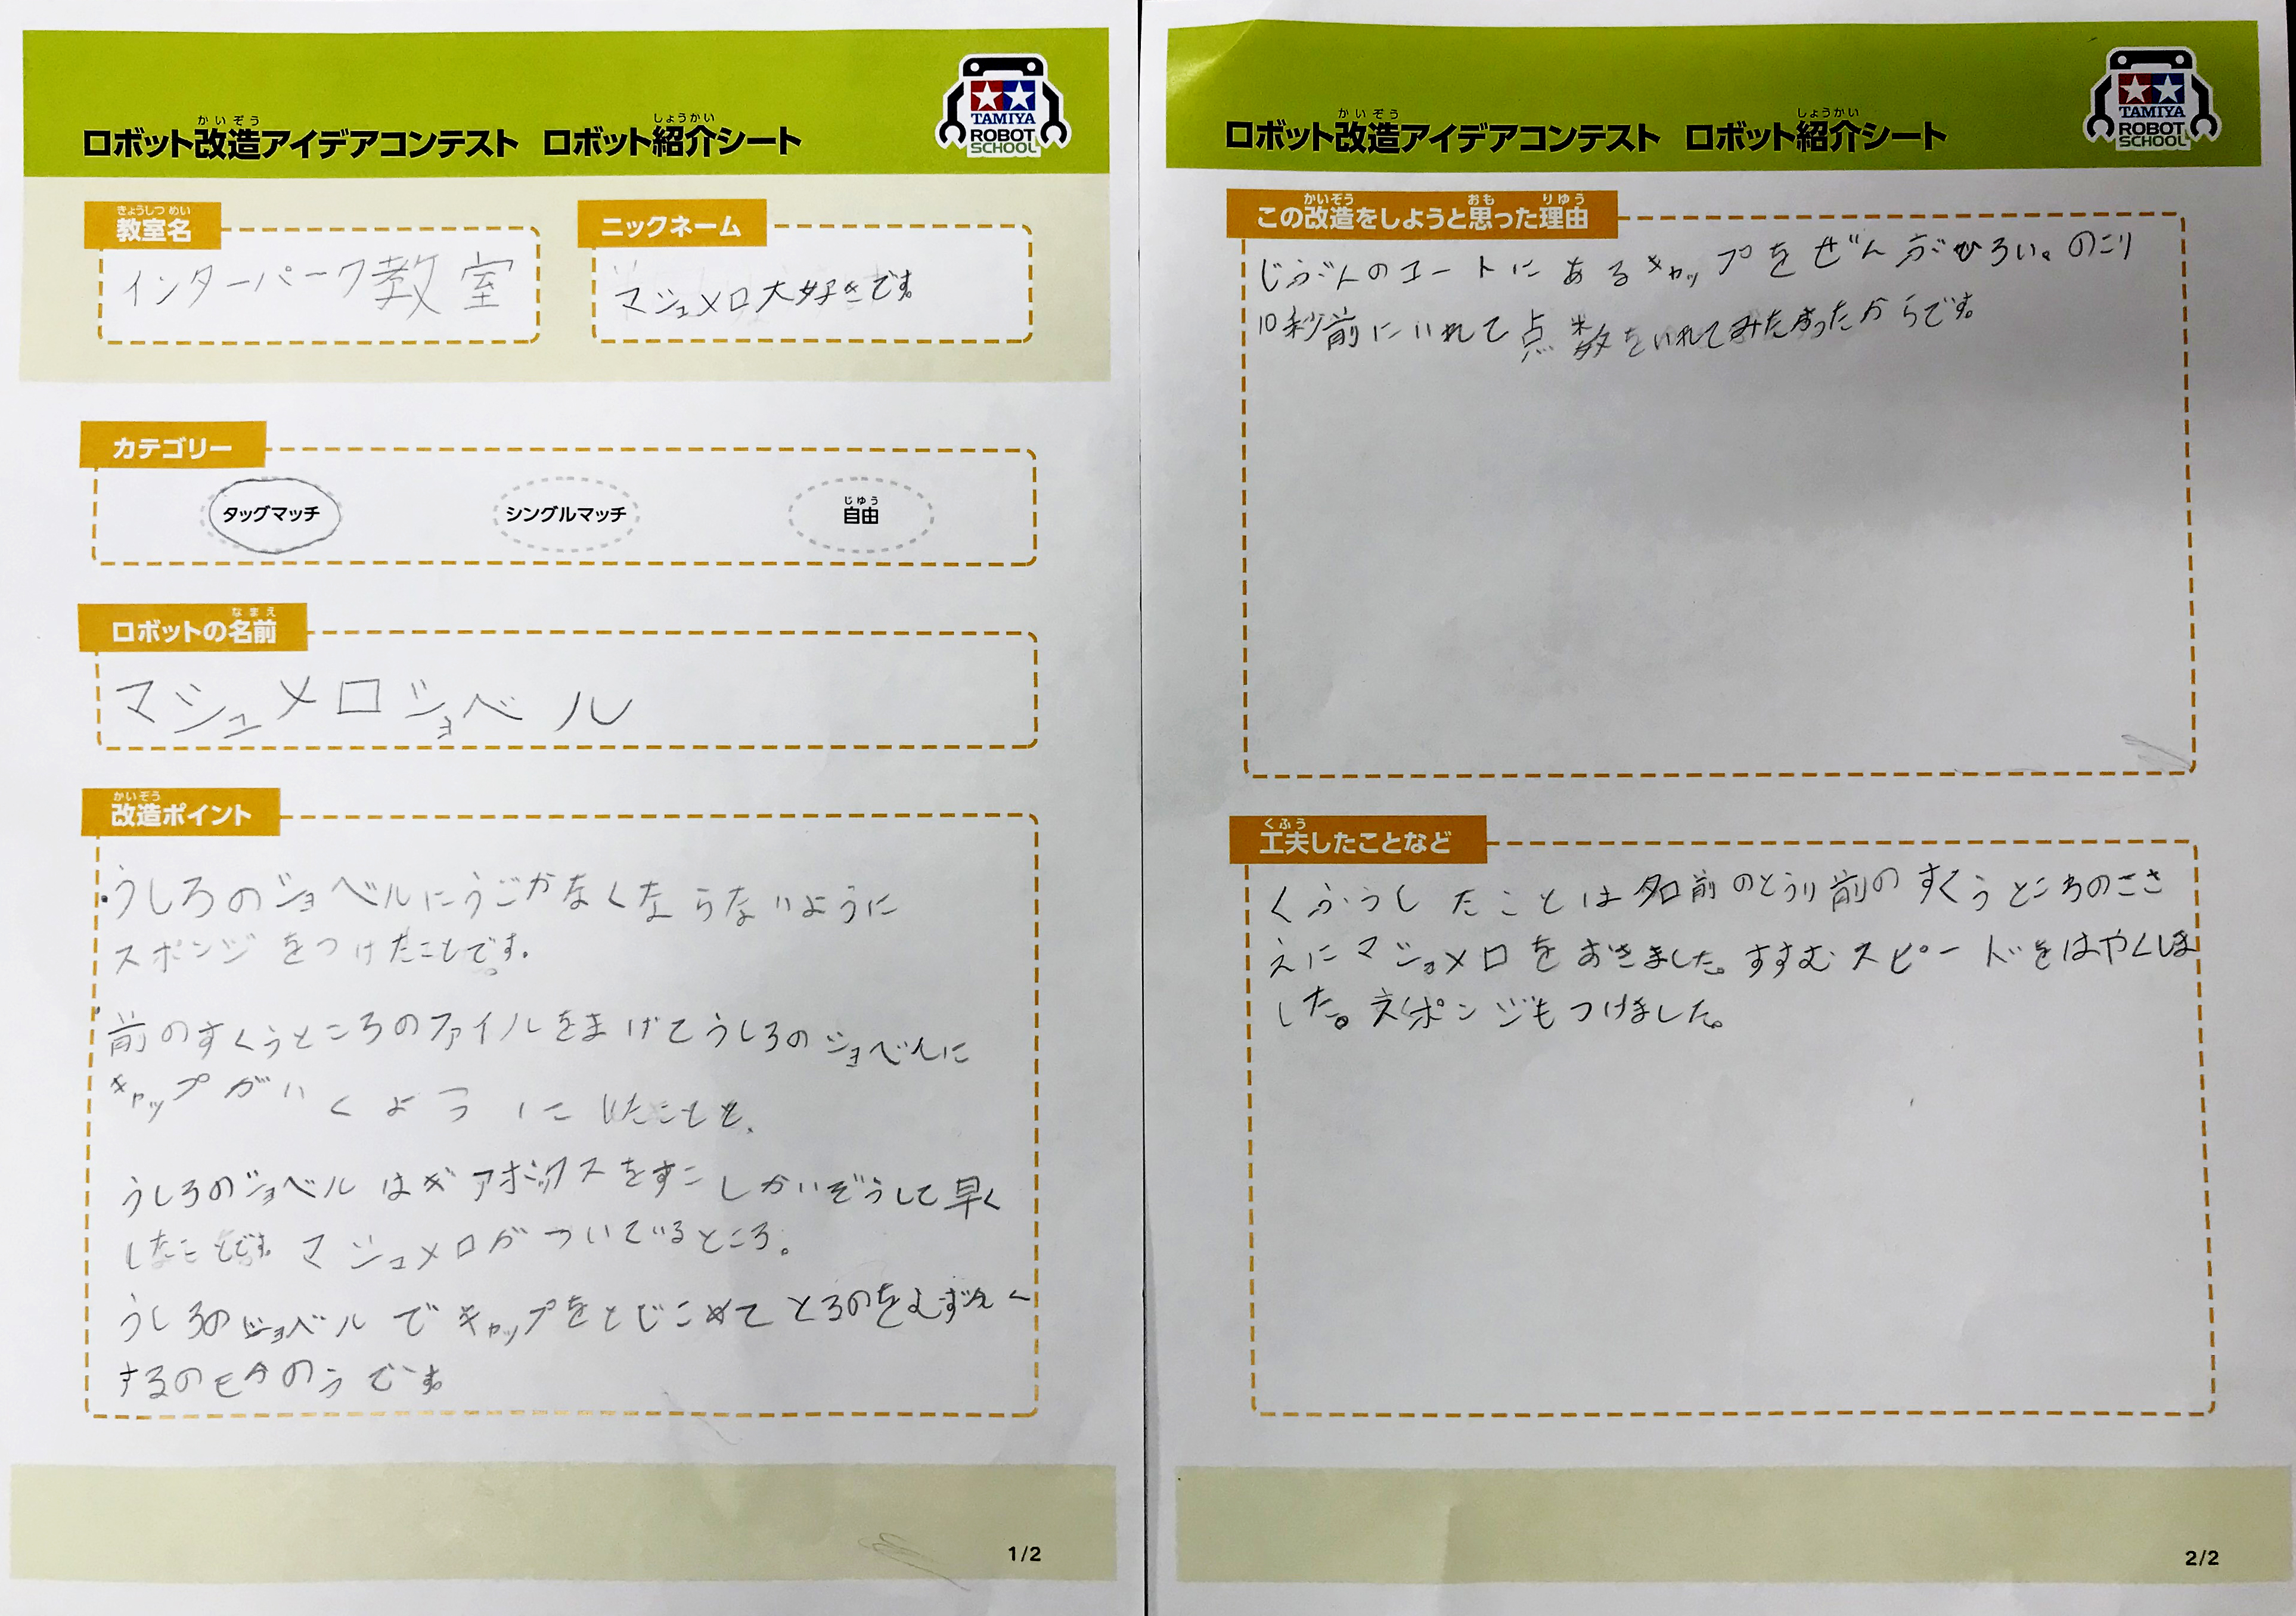 ロボット改造アイデアコンテスト ロボット紹介シート
かいぞう
しょうかい
TAMIYA
ROBOT
SCHOOL
きょうしつめい
教室名
インターパーク教室
ニックネーム
マシュメロ大好きです。
カテゴリー
タッグマッチ
シングルマッチ
じゆう
自由
なまえ
ロボットの名前
マシュメロショベル
かいぞう
改造ポイント
・うしろのショベルにうごかなくならないように
スポンジをつけたことです。
・前のすくうところのファイルをまげてうしろのショベルに
キャップがいくようにしたことと、
うしろのショベルはギアボックスをすこしかいぞうして早く
したことです。マシュメロがついているところ。
うしろのショベルでキャップをとじこめてとるのをむずかしく
するのもかのうです。
1/2
ロボット改造アイデアコンテスト ロボット紹介シート
かいぞう
しょうかい
TAMIYA
ROBOT
SCHOOL
かいぞう おも りゆう
この改造をしようと思った理由
じぶんのコートにあるキャップをぜんぶひろい。のこり
10秒前にいれて点数をいれてみたかったからです。
くふう
工夫したことなど
くふうしたことは名前のとうり前のすくうところのささ
えにマショメロをおきました。すすむスピードをはやくしま
した。スポンジもつけました。
2/2